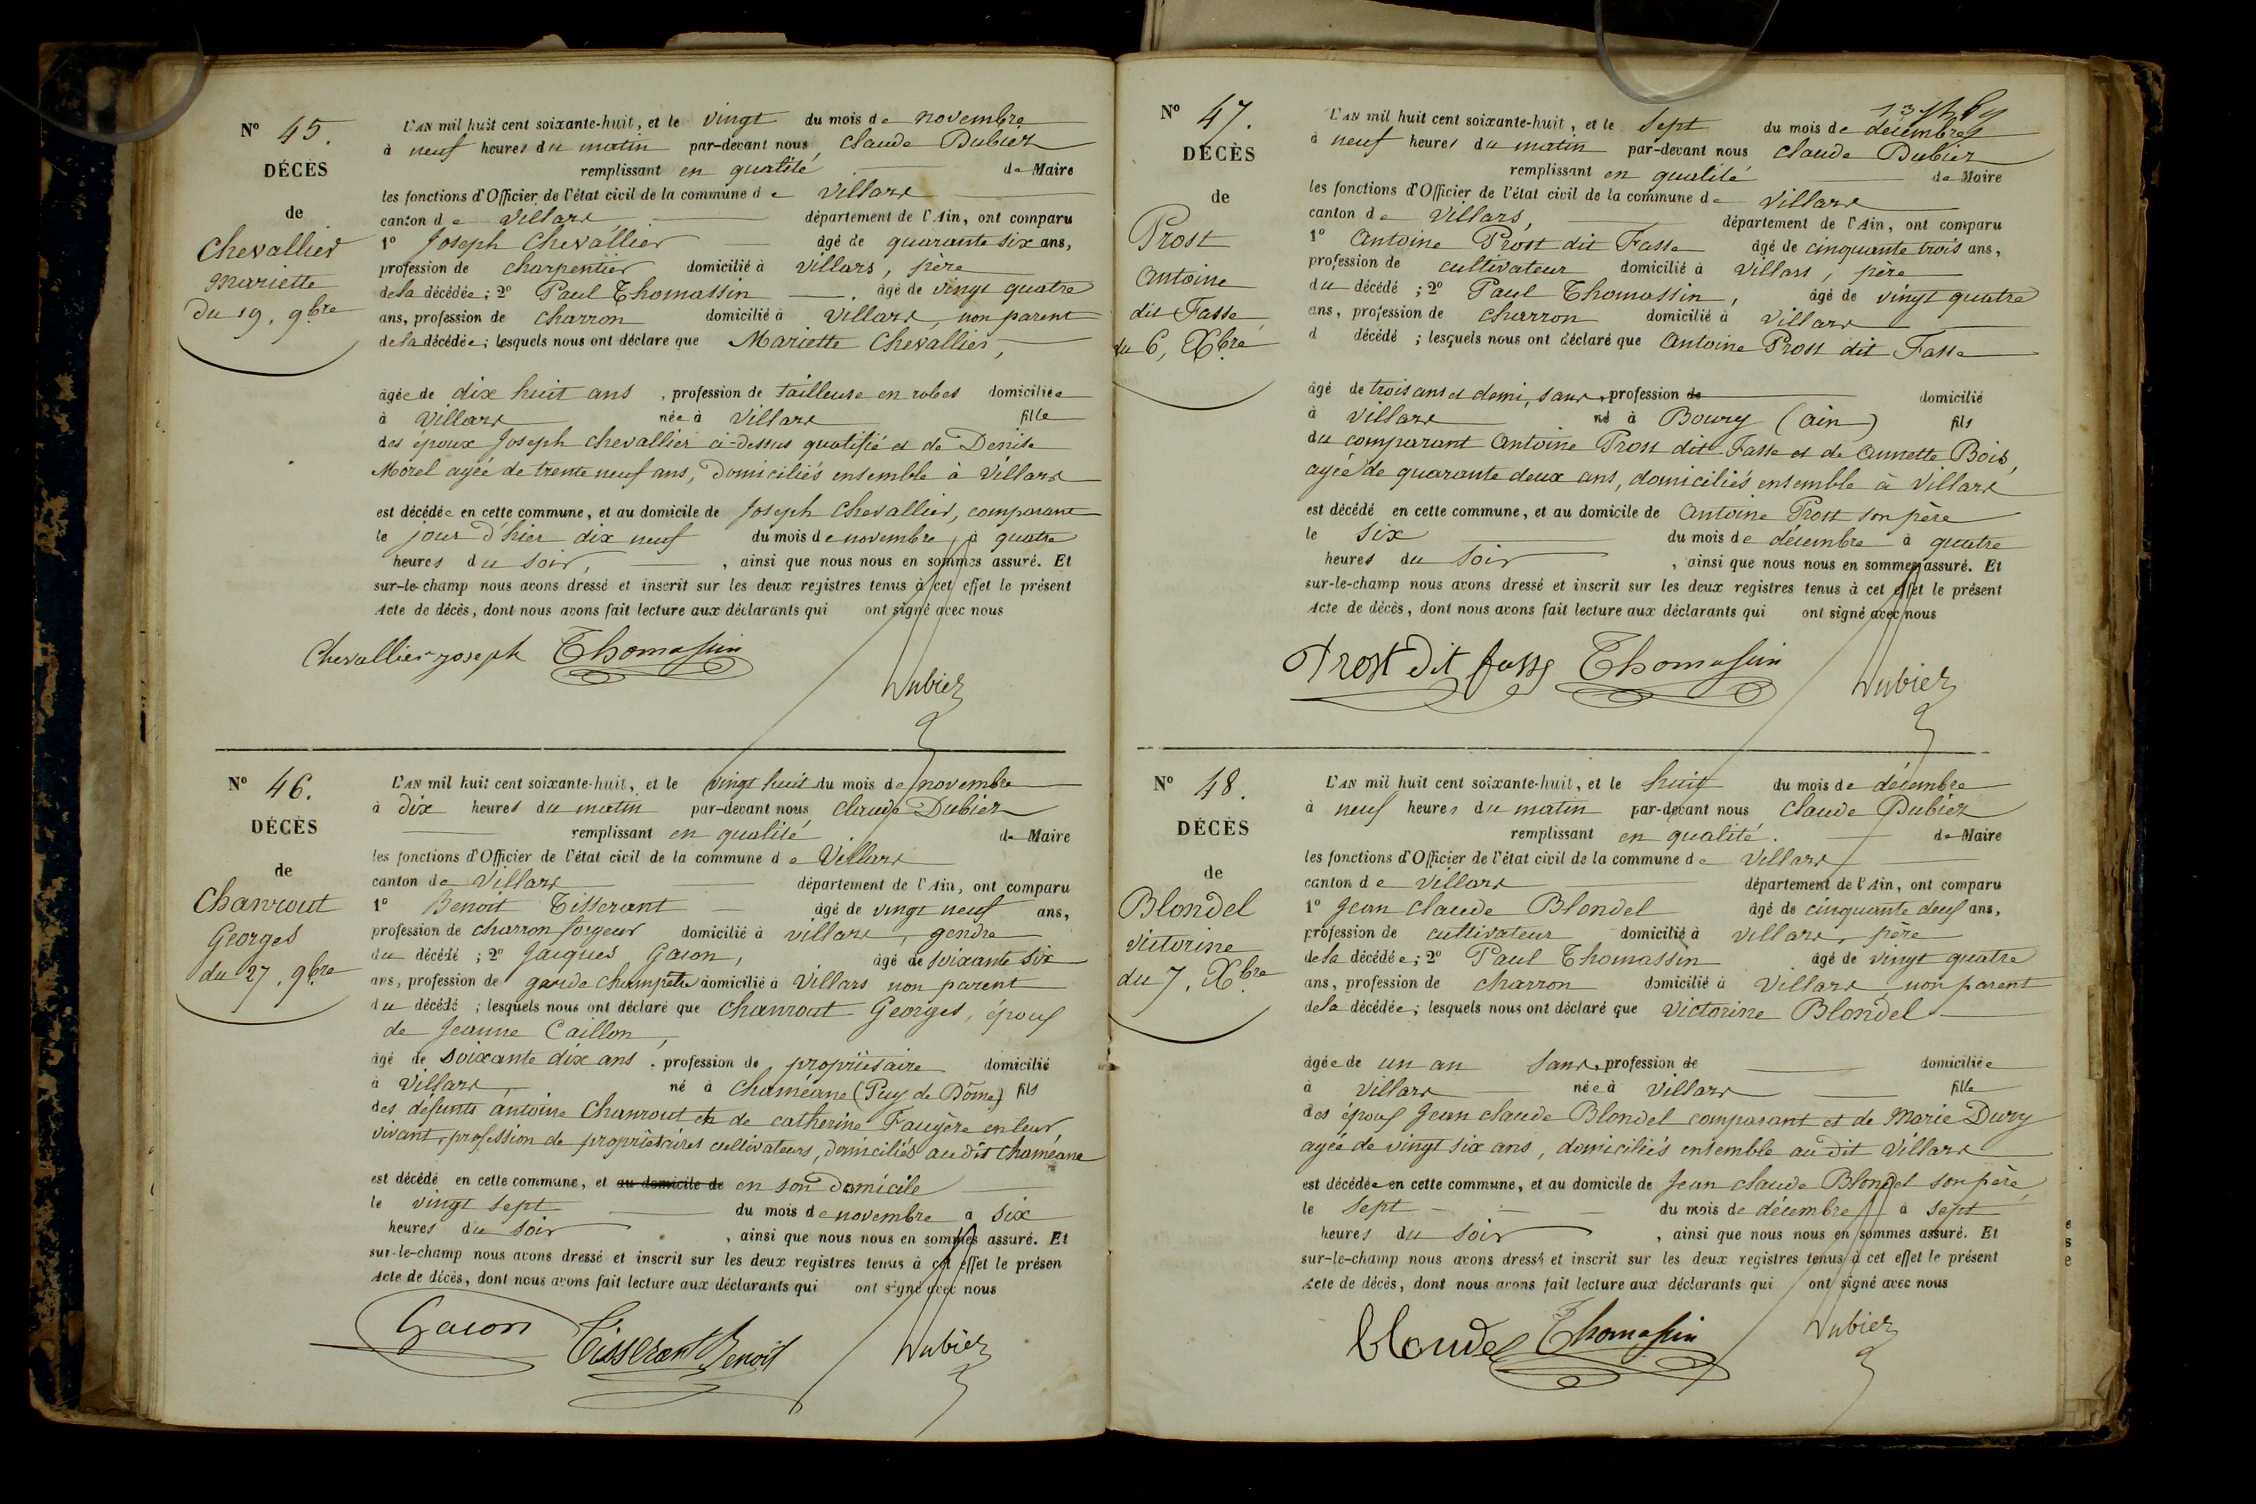 Nº 45.
DÉCÈS
de
Chevallier
Mariette
du 19, 9bre
L'AN mil huit cent soixante-huit, et le vingt du mois de novembre
à neuf heures du matin par-devant nous Claude Dubiez
remplissant en qualité de Maire
les fonctions d'Officier de l'état civil de la commune de Villars
canton de Villars département de l'Ain, ont comparu
1º Joseph Chevallier âgé de quarante six ans,
profession de charpentier domicilié à Villars, père
de la décédée; 2º Paul Thomassin, âgé de vingt quatre
ans, profession de charron domicilié à Villars, non parent
de la décédée; lesquels nous ont déclaré que Mariette Chevallier,
âgée de dix huit ans, profession de tailleuse en robes domiciliée
à Villars née à Villars fille
des époux Joseph Chevallier ci-dessus qualifié et de Denise
Morel agée de trente neuf ans, domiciliés ensemble à Villars
est décédée en cette commune, et au domicile de Joseph Chevallier, comparant
le jour d'hier dix neuf du mois de novembre, à quatre
heures du soir, ainsi que nous nous en sommes assuré. Et
sur-le-champ nous avons dressé et inscrit sur les deux registres tenus à cet effet le présent
Acte de décès, dont nous avons fait lecture aux déclarants qui ont signé avec nous
Chevallier joseph Thomassin
Dubiez
Nº 46.
DÉCÈS
de
Chanrout
Georges
du 27, 9bre
L'AN mil huit cent soixante-huit, et le vingt huit du mois de novembre
à dix heures du matin par-devant nous Claude Dubiez
remplissant en qualité de Maire
les fonctions d'Officier de l'état civil de la commune de Villars
canton de Villars département de l'Ain, ont comparu
1º Benoit Tisserant âgé de vingt neuf ans,
profession de charron forgeur domicilié à Villars, gendre
du décédé; 2º Jacques Gacon, âgé de soixante six
ans, profession de garde champêtre domicilié à Villars non parent
du décédé; lesquels nous ont déclaré que Chanrout Georges, époux
de Jeanne Caillon,
âgé de soixante dix ans, profession de propriétaire domicilié
à Villars, né à Chaméane (Puy de Dôme) fils
des défunts antoine Chanrout et de catherine Faugère en leur
vivant, profession de propriétaires cultivateurs, domiciliés audit Chaméane
est décédé en cette commune, et au domicile de en son domicile
le vingt sept du mois de novembre à six
heures du soir, ainsi que nous nous en sommes assuré. Et
sur-le-champ nous avons dressé et inscrit sur les deux registres tenus à cet effet le présen
Acte de décès, dont nous avons fait lecture aux déclarants qui ont signé avec nous
Gacon Tisserant Benoit Dubiez
Nº 47.
DÉCÈS
de
Prost
Antoine
dit Fasse
du 6, Xbre
L'AN mil huit cent soixante-huit, et le sept du mois de décembre
à neuf heures du matin par-devant nous Claude Dubiez
remplissant en qualité de Maire
les fonctions d'Officier de l'état civil de la commune de Villars
canton de Villars, département de l'Ain, ont comparu
1º Antoine Prost dit Fasse âgé de cinquante trois ans,
profession de cultivateur domicilié à Villars, père
du décédé; 2º Paul Thomassin, âgé de vingt quatre
ans, profession de charron domicilié à Villars
d décédé; lesquels nous ont déclaré que Antoine Prost dit Fasse
âgé de trois ans et demi, sans profession de domicilié
à Villars né à Bourg (ain) fils
du comparant Antoine Prost dit Fasse et de Annette Bois,
agée de quarante deux ans, domiciliés ensemble à Villars
est décédé en cette commune, et au domicile de Antoine Prost son père
le six du mois de décembre à quatre
heures du soir, ainsi que nous nous en sommes assuré. Et
sur-le-champ nous avons dressé et inscrit sur les deux registres tenus à cet effet le présent
Acte de décès, dont nous avons fait lecture aux déclarants qui ont signé avec nous
Prost dit fasse Thomassin Dubiez
Nº 48.
DÉCÈS
de
Blondel
Victorine
du 7, Xbre
L'AN mil huit cent soixante-huit, et le huit du mois de décembre
à neuf heures du matin par-devant nous Claude Dubiez
remplissant en qualité. de Maire
les fonctions d'Officier de l'état civil de la commune de Villars
canton de Villars département de l'Ain, ont comparu
1º Jean Claude Blondel âgé de cinquante deux ans,
profession de cultivateur domicilié à Villars, père
de la décédée; 2º Paul Thomassin âgé de vingt quatre
ans, profession de charron domicilié à Villars non parent
de la décédée; lesquels nous ont déclaré que Victorine Blondel
âgée de un an sans profession de domiciliée
à Villars née à Villars fille
des époux Jean claude Blondel comparant et de Marie Dury
agée de vingt six ans, domiciliés ensemble au dit Villars
est décédée en cette commune, et au domicile de Jean claude Blondel son père
le sept du mois de décembre à sept
heures du soir, ainsi que nous nous en sommes assuré. Et
sur-le-champ nous avons dressé et inscrit sur les deux registres tenus à cet effet le présent
Acte de décès, dont nous avons fait lecture aux déclarants qui ont signé avec nous
blondel Thomassin Dubiez